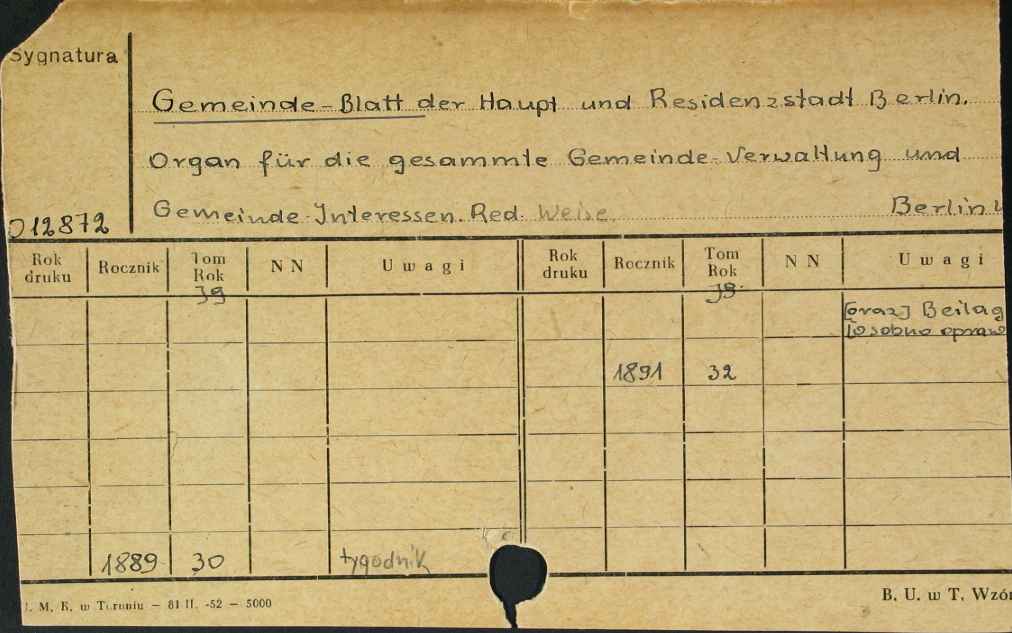 Sygnatura
Gemeinde-Blatt der Haupt und Residenzstadt Berlin.
Organ für die gesammte Gemeinde-Verwaltung und
Gemeinde-Interessen. Red. Weise. Berlin
012872
Rok druku Rocznik Tom Rok NN Uwagi Rok druku Rocznik Tom Rok NN Uwagi
Jg Jg.
[oraz] Beilag
[osobno opraw
1891 32
1889 30 tygodnik
. M. K. w Toruniu — 81 II. -52 — 5000
B. U. w T. Wzór